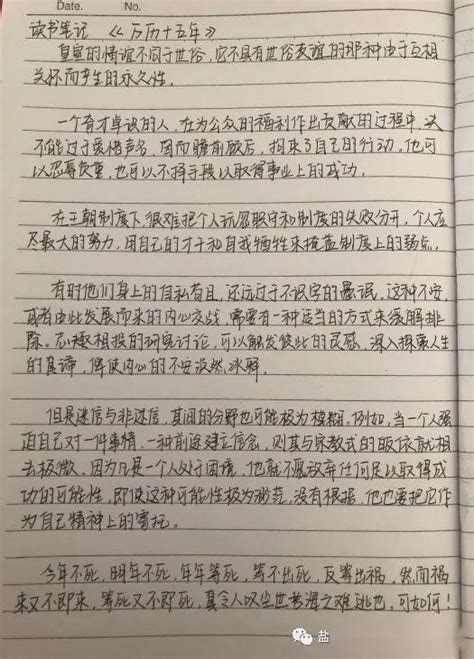 Date.    No.
读书笔记 《万历十五年》
皇室的情谊不同于世俗，它不具有世俗友谊的那种由于互相
关怀而产生的永久性。
一个有才卓识的人，在为公众的福利作出贡献的过程中，决
不能过于爱惜声名，因而瞻前顾后，拘束了自己的行动。他可
以忍辱负重，也可以不择手段以取得事业上的成功。
在王朝制度下，很难把个人玩忽职守和制度的失败分开，个人应
尽最大的努力，用自己的才干和自我牺牲来掩盖制度上的弱点。
有时他们身上的自私苟且，还远过于不识字的愚氓，这种不安，
或者由此发展而来的内心交战，需要有一种适当的方式来缓解排
除。志趣相投的研究讨论，可以触发彼此的灵感，深入探索人生
的真谛，俾使内心的不安涣然冰解。
但是迷信与非迷信，其间的分野也可能极为模糊，例如，当一个人强
迫自己对一件事情，一种前途建立信念，则其与宗教式的皈依就相
去极微，因为凡是一个人处于困境，他就不愿放弃任何足以取得成
功的可能性，即使这种可能性极为渺茫，没有根据，他也要把它作
为自己精神上的寄托。
今年不死，明年不死，年年等死，等不出死，反等出祸，然而祸
来又不即来，等死又不即死，真令人叹尘世苦海之难逃也，可如何！
盐